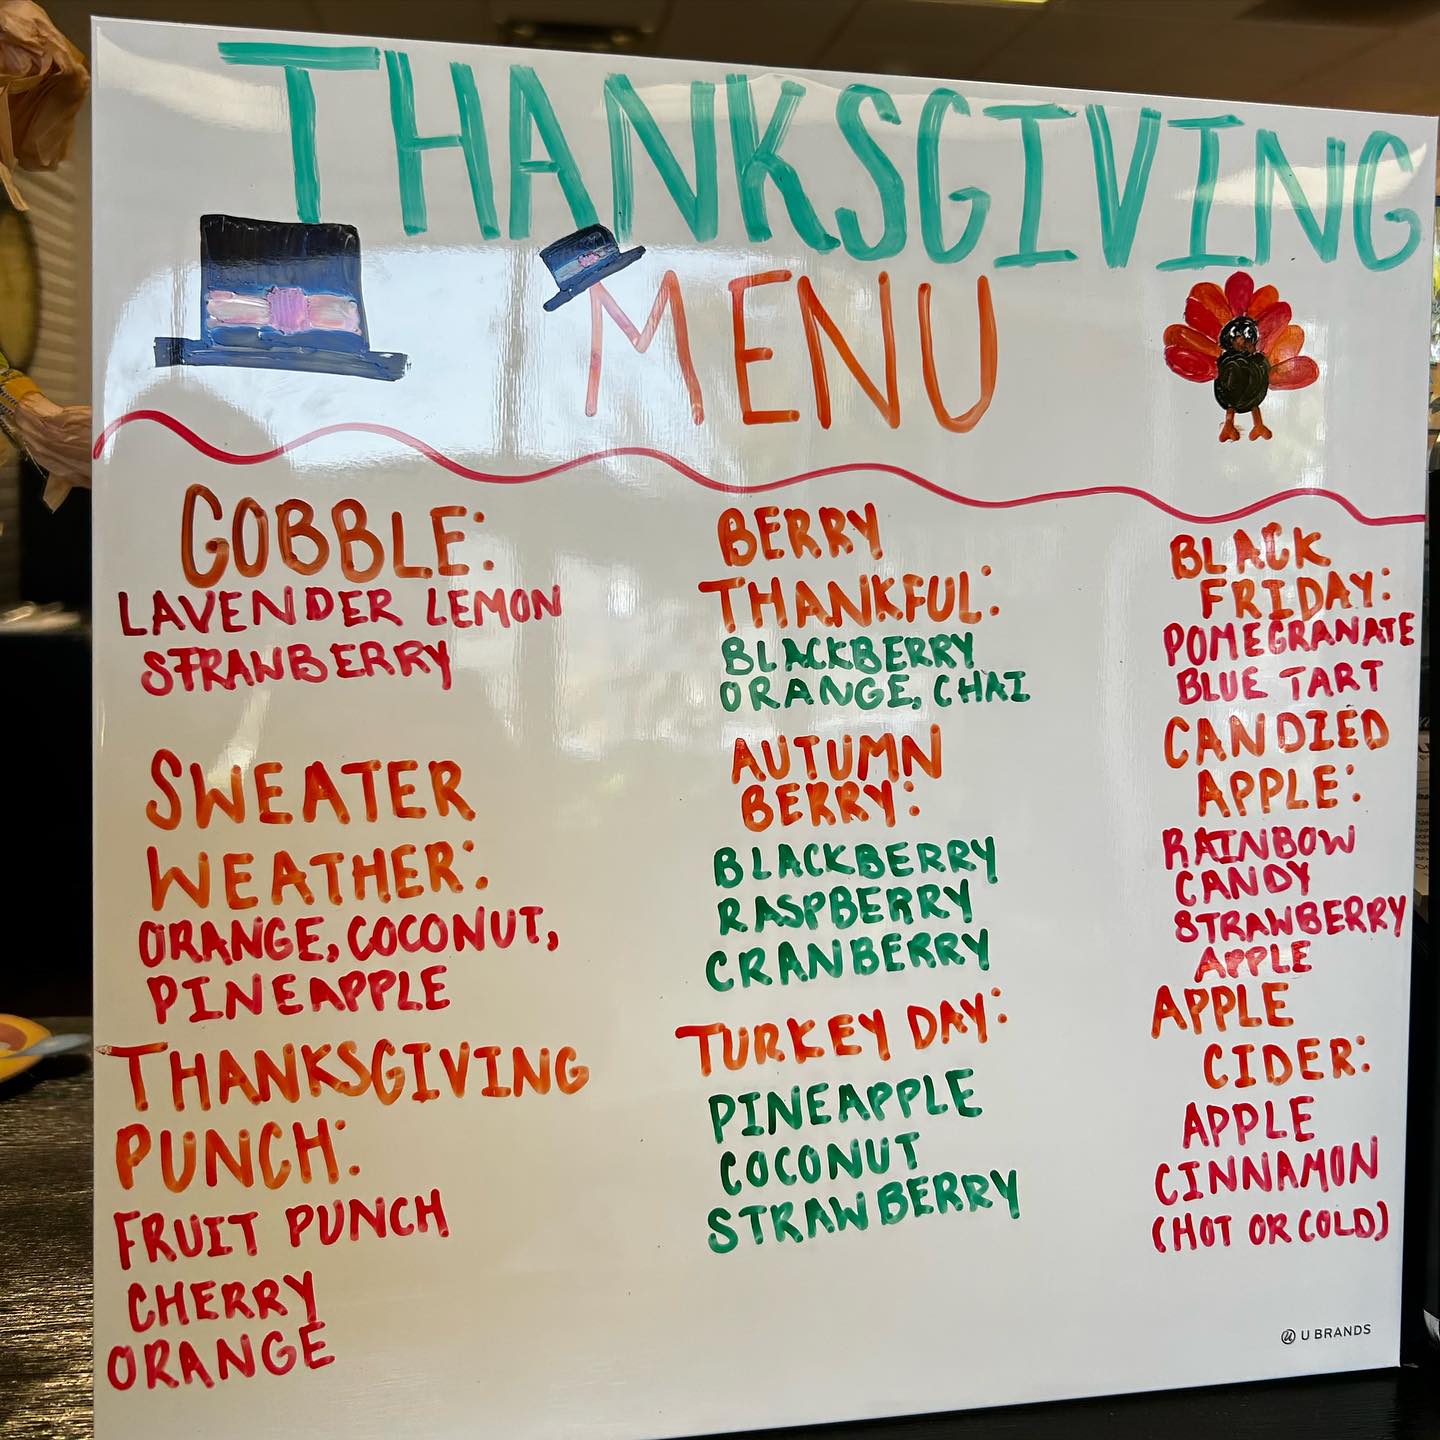 THANKSGIVING
MENU
GOBBLE:
LAVENDER LEMON
STRANBERRY
SWEATER
WEATHER:
ORANGE, COCONUT,
PINEAPPLE
THANKSGIVING
PUNCH:
FRUIT PUNCH
CHERRY
ORANGE
BERRY
THANKFUL:
BLACKBERRY
ORANGE, CHAI
AUTUMN
BERRY:
BLACKBERRY
RASPBERRY
CRANBERRY
TURKEY DAY:
PINEAPPLE
COCONUT
STRAWBERRY
BLACK
FRIDAY:
POMEGRANATE
BLUE TART
CANDIED
APPLE:
RAINBOW
CANDY
STRAWBERRY
APPLE
APPLE
CIDER:
APPLE
CINNAMON
(HOT OR COLD)
U BRANDS